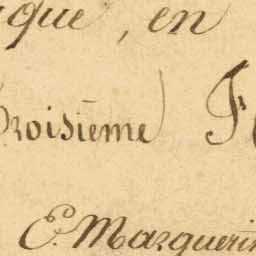 que, en
Troisième
E. Marguerin